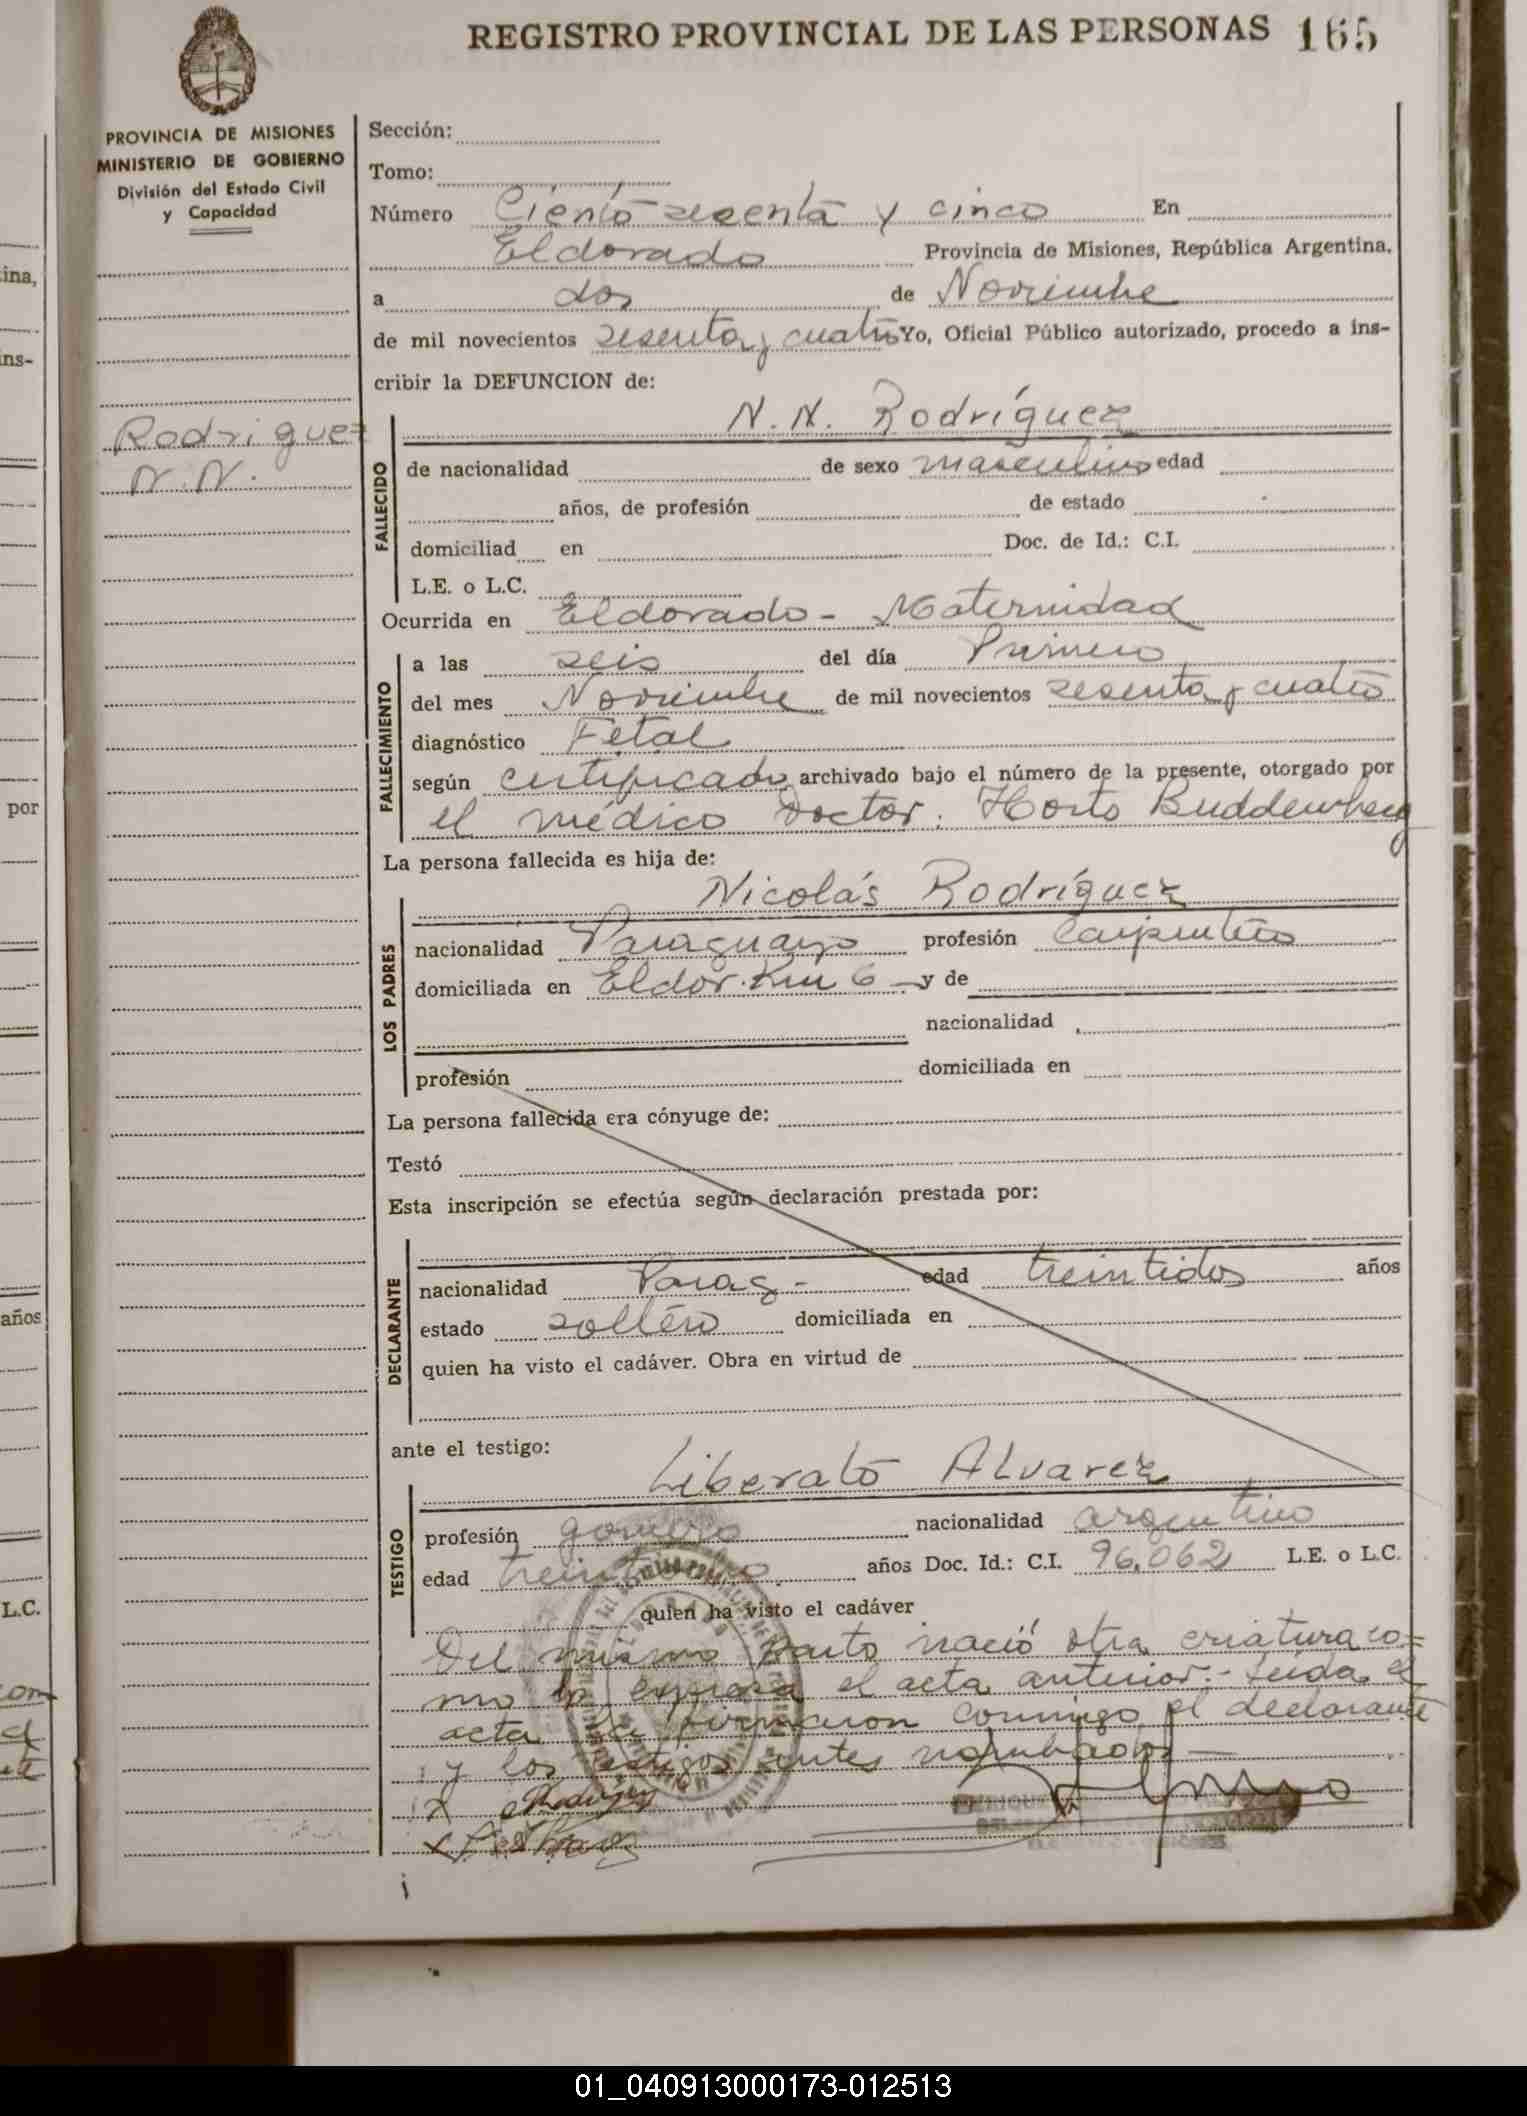 REGISTRO PROVINCIAL DE LAS PERSONAS 165
PROVINCIA DE MISIONES
MINISTERIO DE GOBIERNO
División del Estado Civil
y Capacidad
Rodriguez
N. N.
Sección:
Tomo:
Número Ciento sesenta y cinco En
Eldorado Provincia de Misiones, República Argentina,
a dos de Noviembre
de mil novecientos sesenta y cuatro Yo, Oficial Público autorizado, procedo a ins-
cribir la DEFUNCION de:
N. N. Rodríguez
FALLECIDO
de nacionalidad de sexo masculino edad
años, de profesión de estado
domiciliad en Doc. de Id.: C.I.
L.E. o L.C.
Ocurrida en Eldorado - Maternidad
FALLECIMIENTO
a las seis del día Primero
del mes Noviembre de mil novecientos sesenta y cuatro
diagnóstico Fetal
según certificado archivado bajo el número de la presente, otorgado por
el médico Doctor. Horts Buddemberg
La persona fallecida es hija de:
Nicolás Rodríguez
LOS PADRES
nacionalidad Paraguayo profesión Carpintero
domiciliada en Eldor. Km 6 - y de
nacionalidad
profesión domiciliada en
La persona fallecida era cónyuge de:
Testó
Esta inscripción se efectúa según declaración prestada por:
DECLARANTE
nacionalidad Parag - edad treintidos años
estado soltero domiciliada en
quien ha visto el cadáver. Obra en virtud de
ante el testigo:
Liberato Alvarez
TESTIGO
profesión gomero nacionalidad argentino
edad años Doc. Id.: C.I. 96.062 L.E. o L.C.
quien ha visto el cadáver
Del mismo parto nació otra criatura co=
mo lo expresa el acta anterior.- Leida el
acta la firmaron conmigo el declarante
y los testigos antes nombados —
01_040913000173-012513